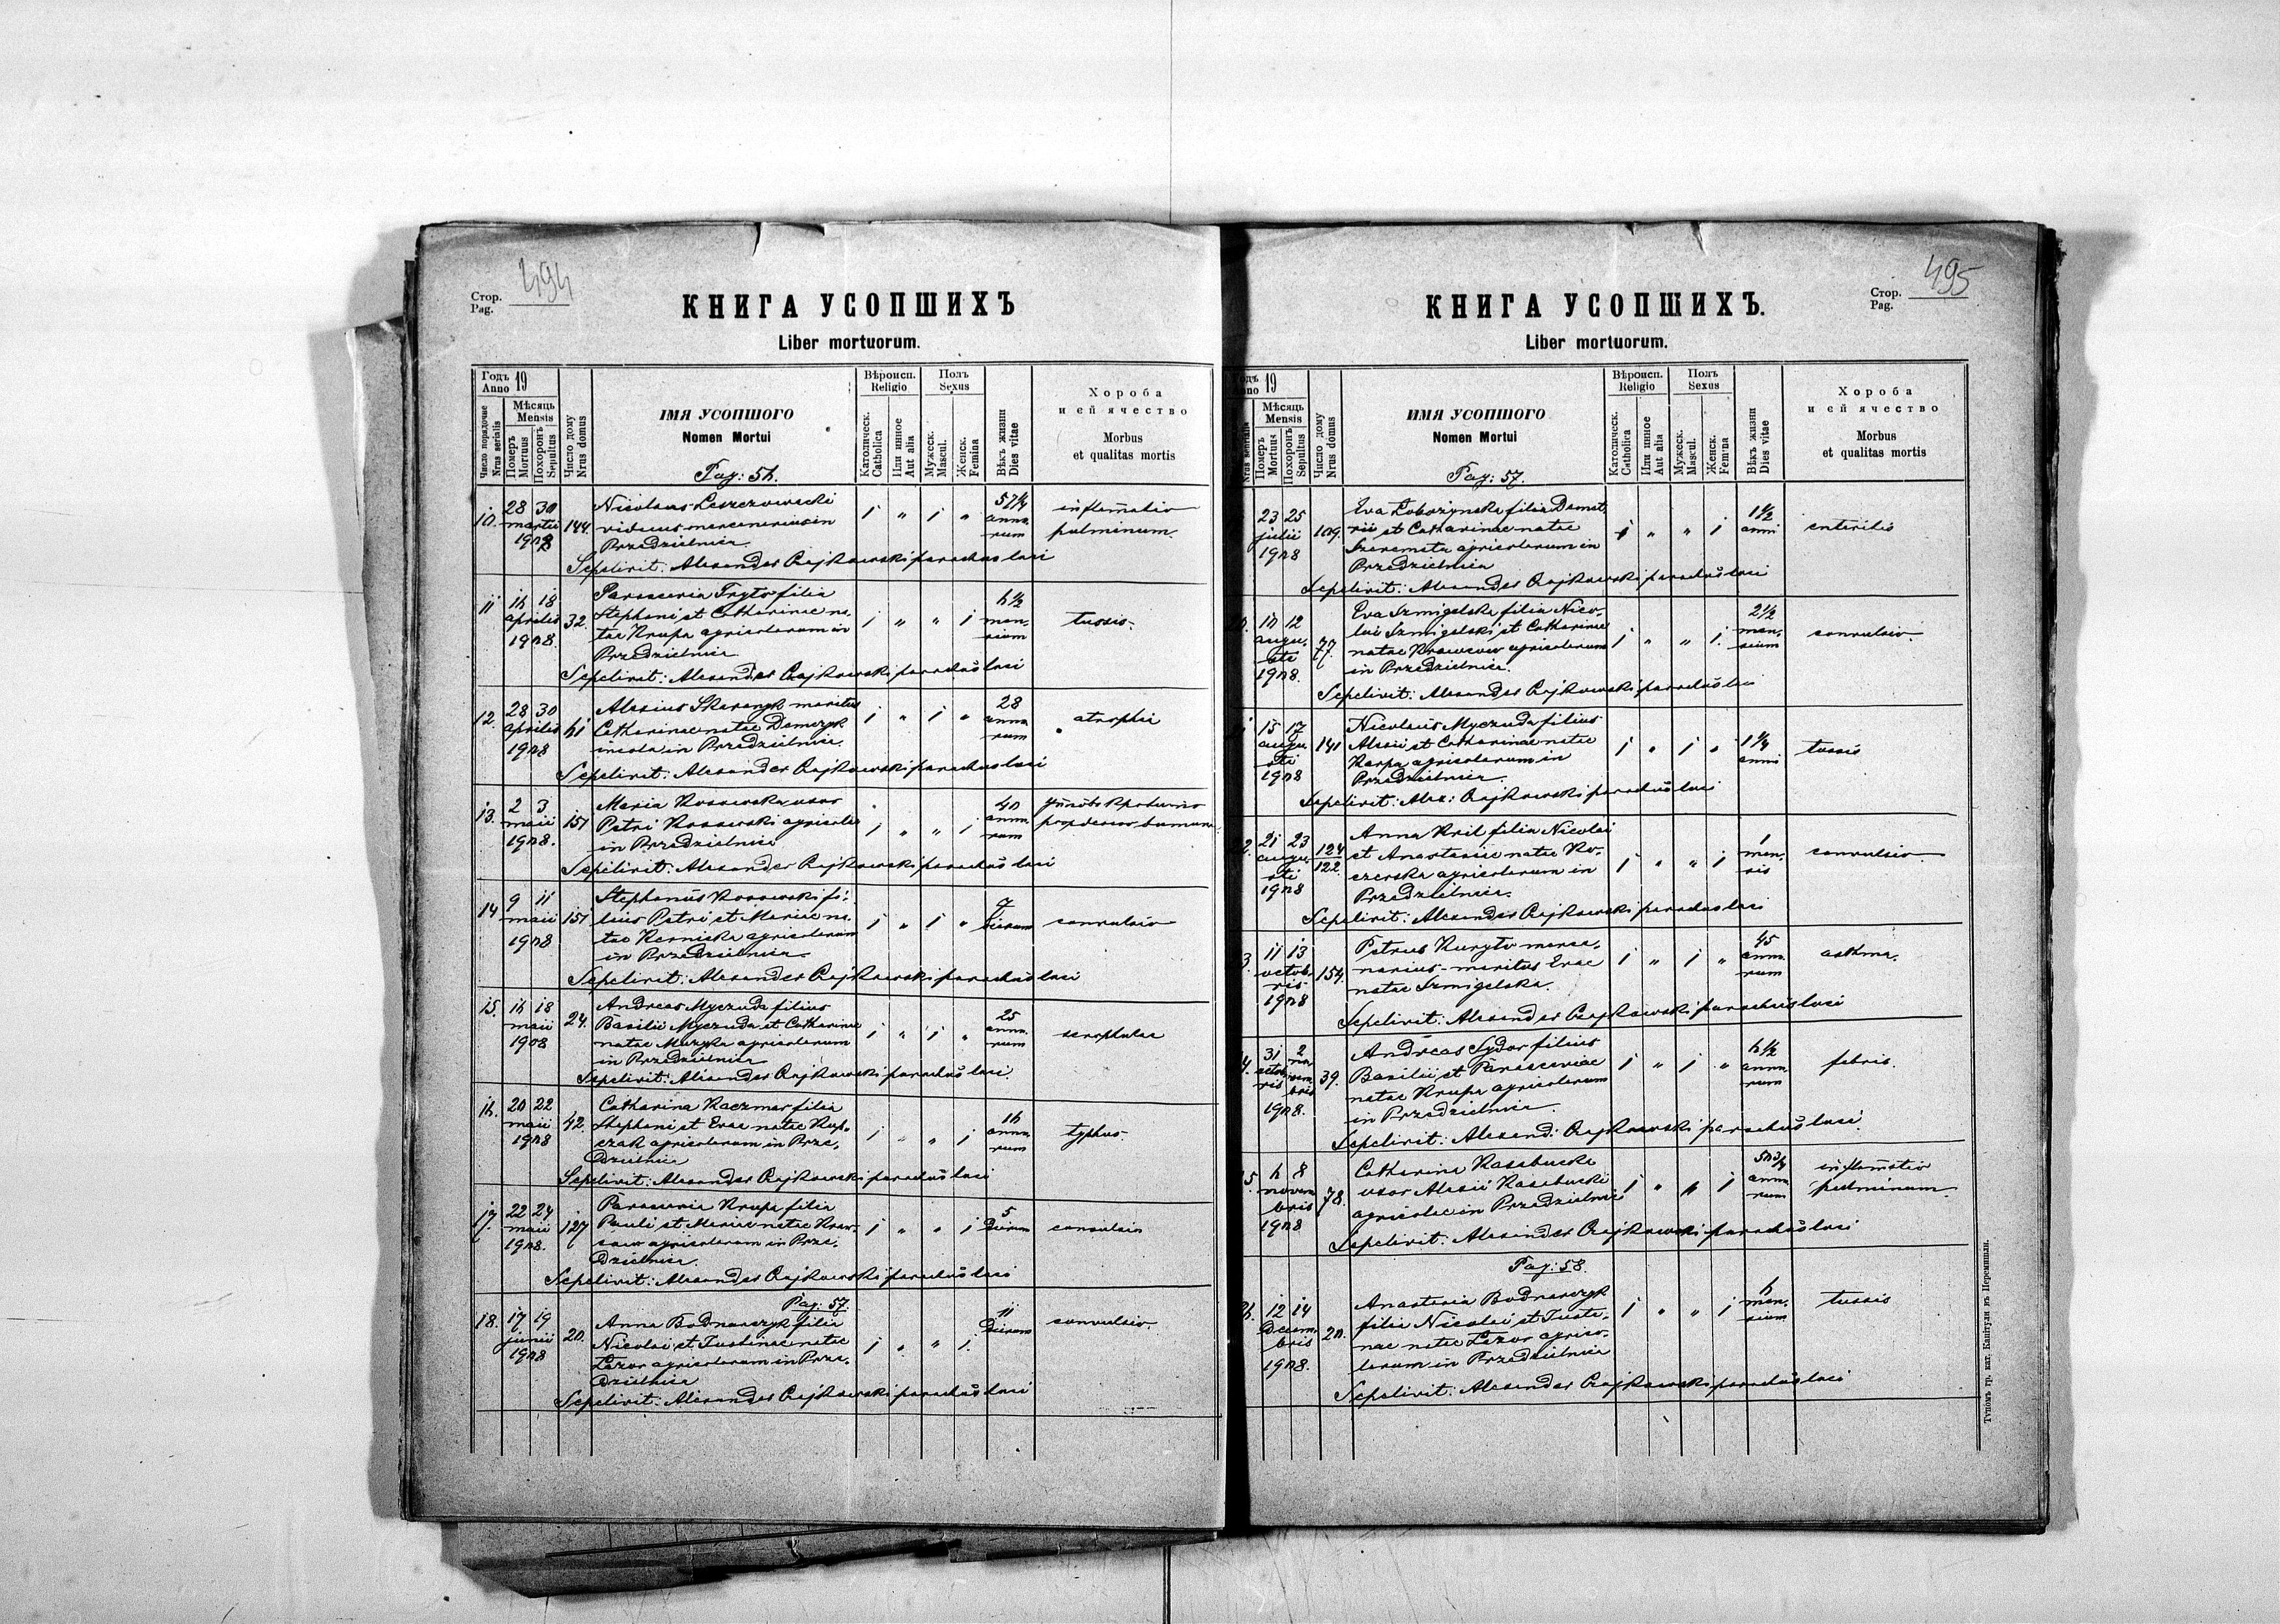 Стор. 494
Pag.
КНИГА УСОПШИХЪ
Liber mortuorum.
Годъ 19
Anno
Мѣсяць
Mensis
Число порядочне
Nrus serialis
Померъ
Mortuus
Похоронъ
Sepultus
Число дому
Nrus domus
ІМЯ УСОПШОГО
Nomen Mortui
Pag: 56.
Вѣроисп.
Religio
Католическ.
Catholica
Или инное
Aut alia
Полъ
Sexus
Мужеск.
Mascul.
Женск.
Femina
Вѣкъ жизни
Dies vitae
Хороба
и ей ячество
Morbus
et qualitas mortis
10. 28 30 martii 1908 144.
Nicolaus Leszczowecki
viduus mercenarius in
Przedzielnica
1 " 1 " 57 1/4 annorum
inflamatio
pulminum.
Sepelivit: Alexander Czajkowski parochus loci
11 16 18 aprilis 1908. 32.
Parascevia Fryto filia
Stephani et Catharinae na-
tae Krupa agricolarum in
Przedzielnica
1 " " 1 6 1/2 mensium
tussis.
Sepelivit: Alexander Czajkowski parochus loci
12. 28 30 aprilis 1908 61
Alexius Skaranyk maritus
Catharinae natae Demczyk
incola in Przedzielnica.
1 " 1 " 28 annorum
atrophia
Sepelivit: Alexander Czajkowski parochus loci
13. 2 3 maii 1908. 151
Maria Kossowska uxor
Petri Kossowski agricolae
in Przedzielnica
1 " " 1 40 annorum
Sepelivit: Alexander Czajkowski parochus loci
14 9 11 maii 1908 151
Stephanus Kossowski fi-
lius Petri et Mariae na-
tae Karnicka agricolarum
in Przedzielnica
1 " 1 " 7 dierum
convulsio
Sepelivit: Alexander Czajkowski parochus loci
15. 16 18 maii 1908 24.
Andreas Myczuda filius
Basilii Myczuda et Catharinae
natae Muzyka agricolarum
in Przedzielnica
1 " 1 " 25 annorum
scrophulae
Sepelivit: Alexander Czajkowski parochus loci.
16. 20 22 maii 1908 42.
Catharina Kaczmar filia
Stephani et Evae natae Kup-
czak agricolarum in Prze-
dzielnica
1 " " 1 16 annorum
typhus.
Sepelivit: Alexander Czajkowski parochus loci
17. 22 24 maii 1908. 127
Parascevia Krupa filia
Pauli et Mariae natae Kraw-
ców agricolarum in Prze-
dzielnica.
1 " " 1 5 dierum
convulsio
Sepelivit: Alexander Czajkowski parochus loci
Pag: 57.
18. 17 19 junii 1908 20.
Anna Bodnarczyk filia
Nicolai et Justinae natae
Lazor agricolarum in Prze-
dzielnica
1 " " 1. 11 dierum
convulsio.
Sepelivit: Alexander Czajkowski parochus loci
Стор. 495
Pag.
КНИГА УСОПШИХЪ.
Liber mortuorum.
Годъ 19
Anno
Мѣсяць
Mensis
Nrus serialis
Померъ
Mortuus
Похоронъ
Sepultus
Число дому
Nrus domus
ІМЯ УСОПШОГО
Nomen Mortui
Pag: 57.
Вѣроисп.
Religio
Католическ.
Catholica
Или инное
Aut alia
Полъ
Sexus
Мужеск.
Mascul.
Женск.
Femina
Вѣкъ жизни
Dies vitae
Хороба
и ей ячество
Morbus
et qualitas mortis
23 25 julii 1908 109.
Eva Łobożynska filia Demet-
rii et Catharinae natae
Szeremeta agricolarum in
Przedzielnica
1 " " 1 1 1/2 anni
enteritis
Sepelivit: Alexander Czajkowski parochus loci
10 12 augusti 1908. 77.
Eva Szmigelska filia Nico-
lai Szmigelski et Catharinae
natae Krawców agricolarum
in Przedzielnica.
1 " " 1. 2 1/2 mensium
convulsio.
Sepelivit: Alexander Czajkowski parochus loci
15 17 augusti 1908 141
Nicolaus Myczuda filius
Alexii et Catharinae natae
Karpa agricolarum in
Przedzielnica.
1 " 1 " 1 1/4 anni
tussis
Sepelivit: Alex: Czajkowski parochus loci
2. 21 23 augusti 1908 124
122.
Anna Kril filia Nicolai
et Anastasiae natae Ko-
czerska agricolarum in
Przedzielnica.
1 " " 1 1 mensis
convulsio.
Sepelivit: Alexander Czajkowski parochus loci
3. 11 13 octobris 1908 154.
Petrus Kuryto merce-
narius maritus Evae
natae Szmigelska.
1 " 1 " 45 annorum
asthma.
Sepelivit: Alexander Czajkowski parochus loci
4. 31 octobris 2 novembris 1908. 39.
Andreas Sydor filius
Basilii et Parasceviae
natae Krupa agricolarum
in Przedzielnica.
1 " 1 " 6 1/2 annorum
febris.
Sepelivit: Alexand: Czajkowski parochus loci.
5. 6 8 novembris 1908 78.
Catharina Kasabucka
uxor Alexii Kasabucki
agricolae in Przedzielnica
1 " " 1 50 3/4 annorum
inflamatio
pulminum.
Sepelivit: Alexander Czajkowski parochus loci
Pag: 58.
6. 12 14 decembris 1908. 20.
Anastasia Bodnarczyk
filia Nicolai et Justi-
nae natae Lazor agrico-
larum in Przedzielnica
1 " " 1 6 mensium
tussis
Sepelivit: Alexander Czajkowski parochus loci
Типомъ гр. кат. Капітули въ Перемишли.